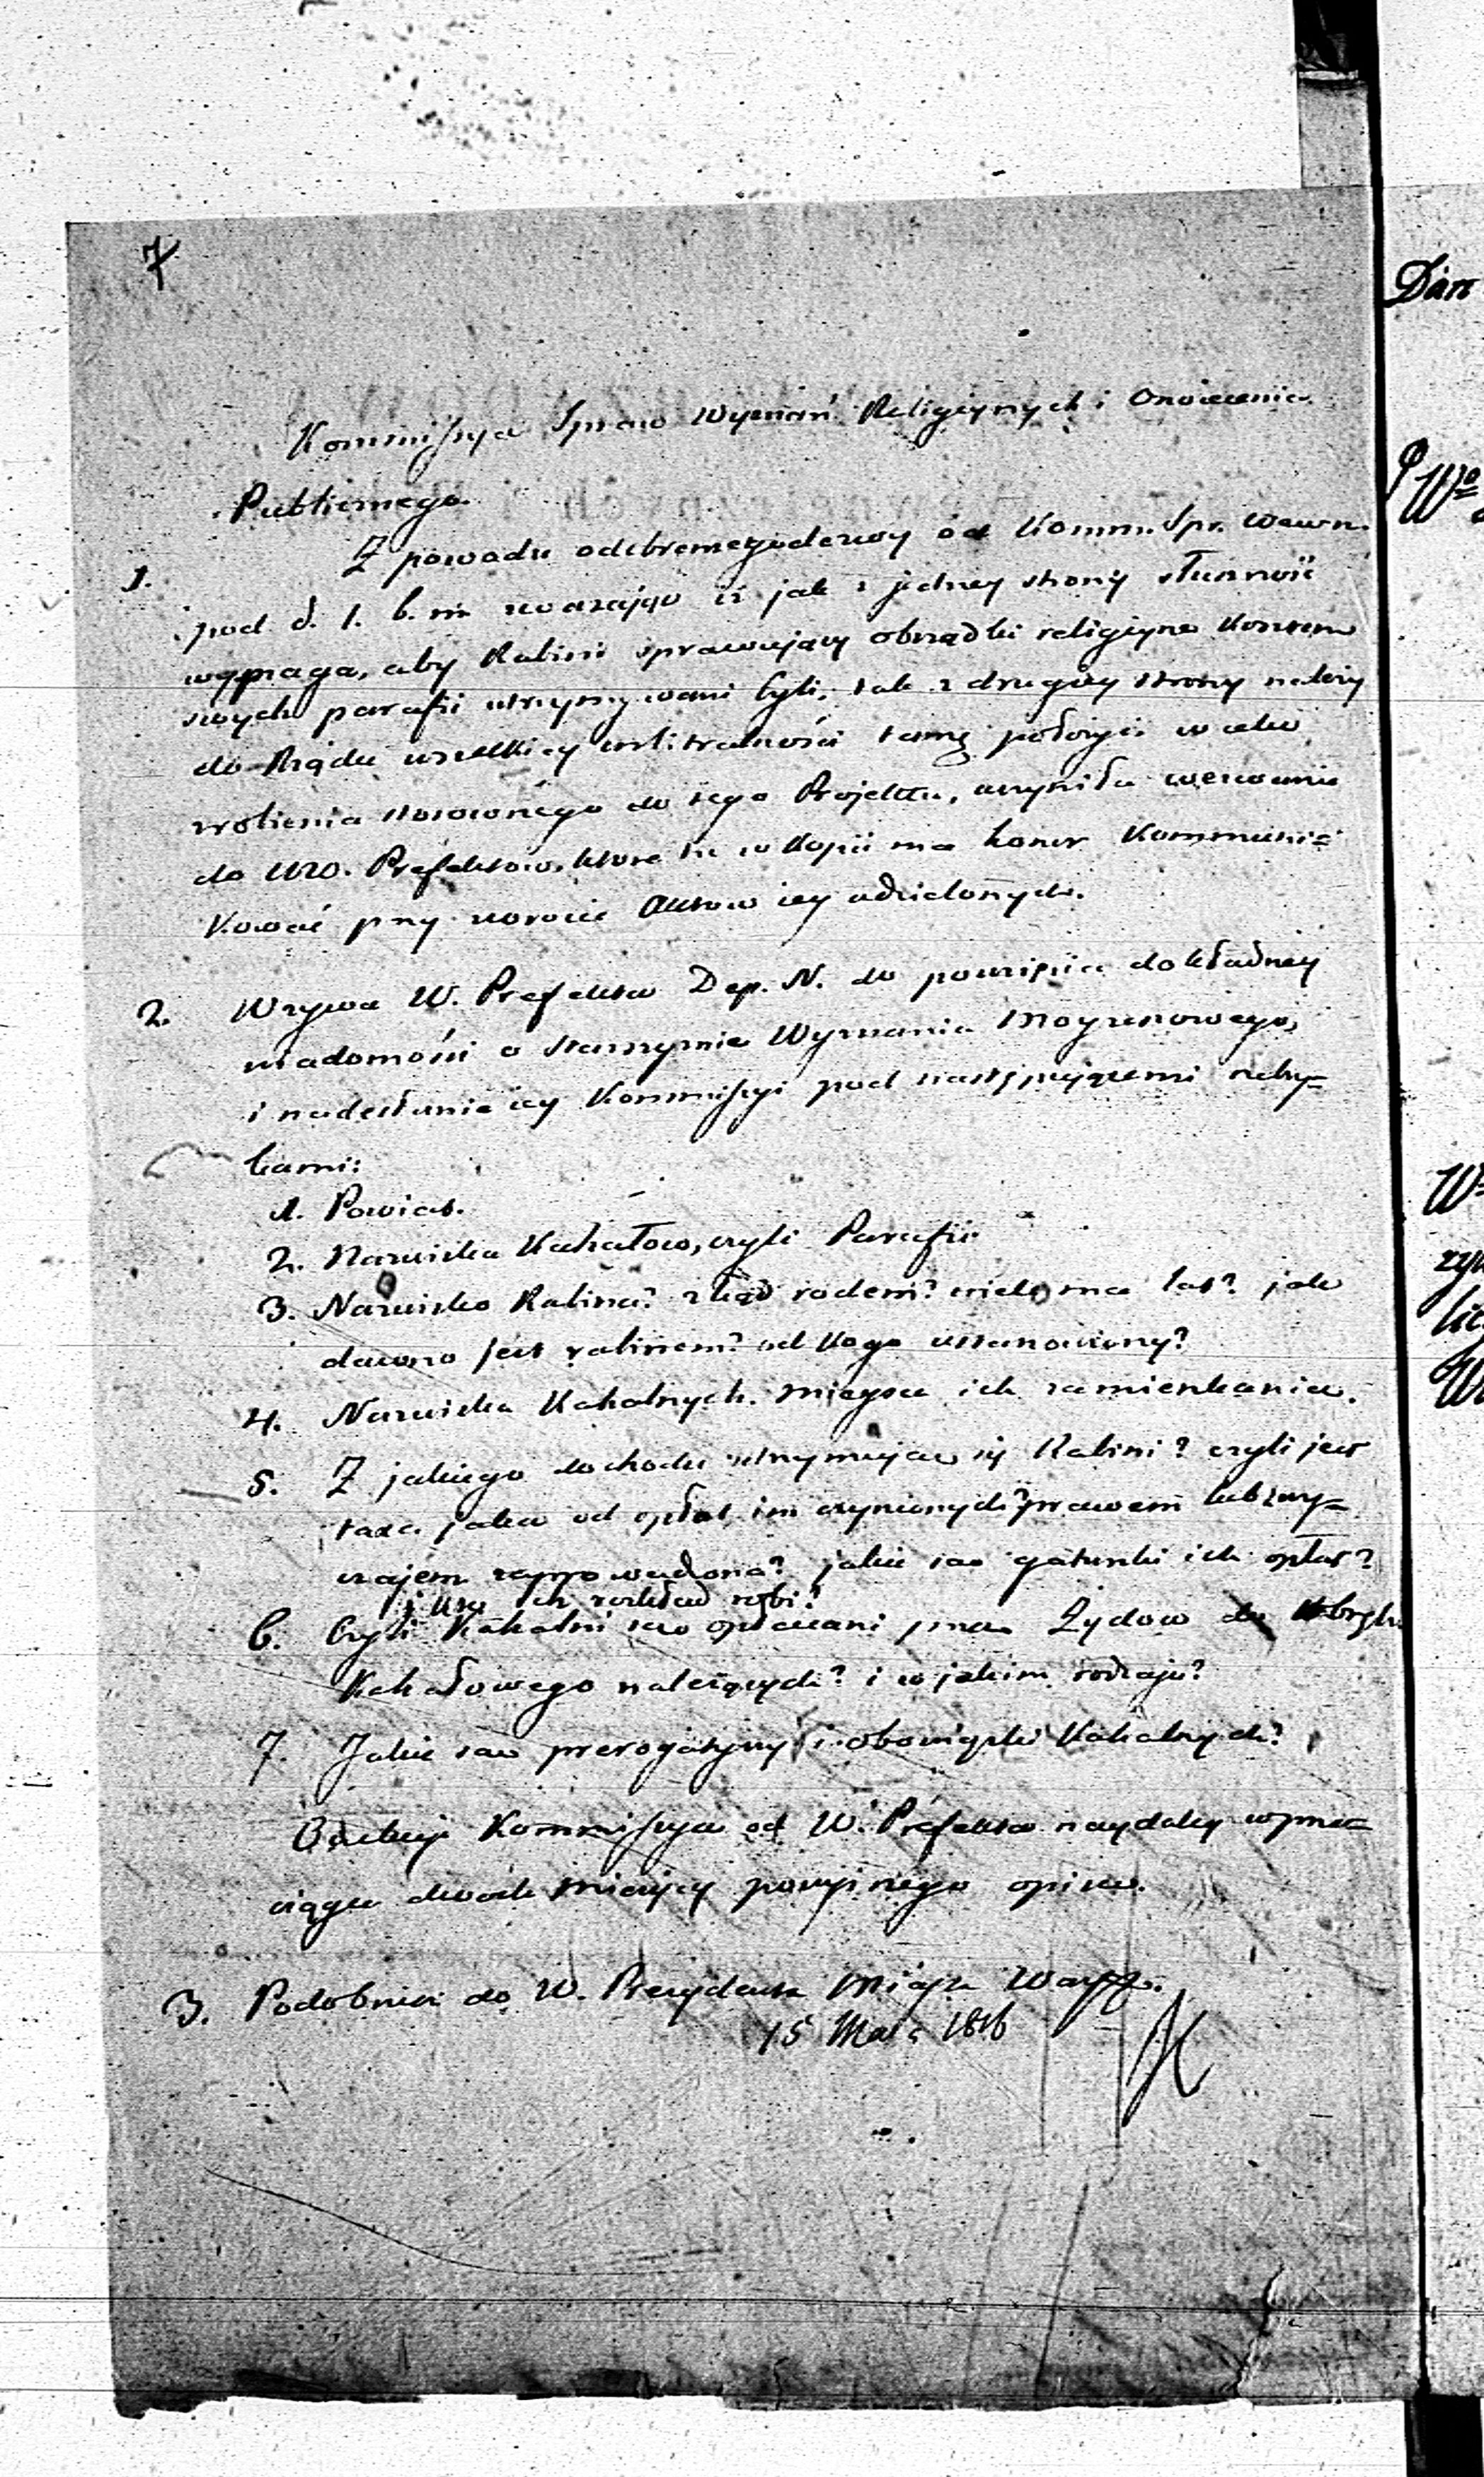 7
Kommissya Spraw Wyznań Religiynych i Oświecenia
Publicznego.
1. Z powodu odebraney odezwy od Komm. Spr. Wewn.
pod d. 1. b. m. uważając iż jak z jedney strony słuszność
wymaga, aby Rabini sprawujący obrządki religiyne kosztem
swych parafii utrzymywani byli, tak z drugiey strony należy
do Rządu wszelkiey arbitralności tamę położyć w celu
zrobienia stosownego do tego Projektu, uczyniła wezwanie
do WW. Prefektów, które tu w kopii ma honor kommuni=
kować przy zwrocie Aktów iey udzielonych.
2. Wzywa W. Prefekta Dep. N. do powzięcia dokładney
wiadomości o starszyznie Wyznania Moyżeszowego,
i nadesłania iey Kommissyi pod następującemi rubry=
kami:
1. Powiat.
2. Nazwiska Kahałów, czyli Parafii
3. Nazwisko Rabina? zkąd rodem? wiele ma lat? jak
dawno jest rabinem? od kogo ustanowiony?
4. Nazwiska Kahalnych. Mieysca ich zamieszkania.
5. Z jakiego dochodu utrzymują się Rabini? czyli jest
taxa jaka od opłat im czynionych? prawem lub zwy=
czajem zaprowadzona? jakie są gatunki ich opłat?
i kto ich rozkład robi?
6. Czyli Kahalni są opłacani przez Żydów do Obrębu
Kahałowego należących? i w jakim rodzaju?
7. Jakie są prerogatywy i obowiązki Kahalnych?
Oczekuje Kommissya od W. Prefekta naydaley w prze=
ciągu dwóch miesięcy powyższego opisu.
3. Podobnież do W. Prezydenta Miasta Warsz.
15 Mar. 1816
Dan
W°
W
W